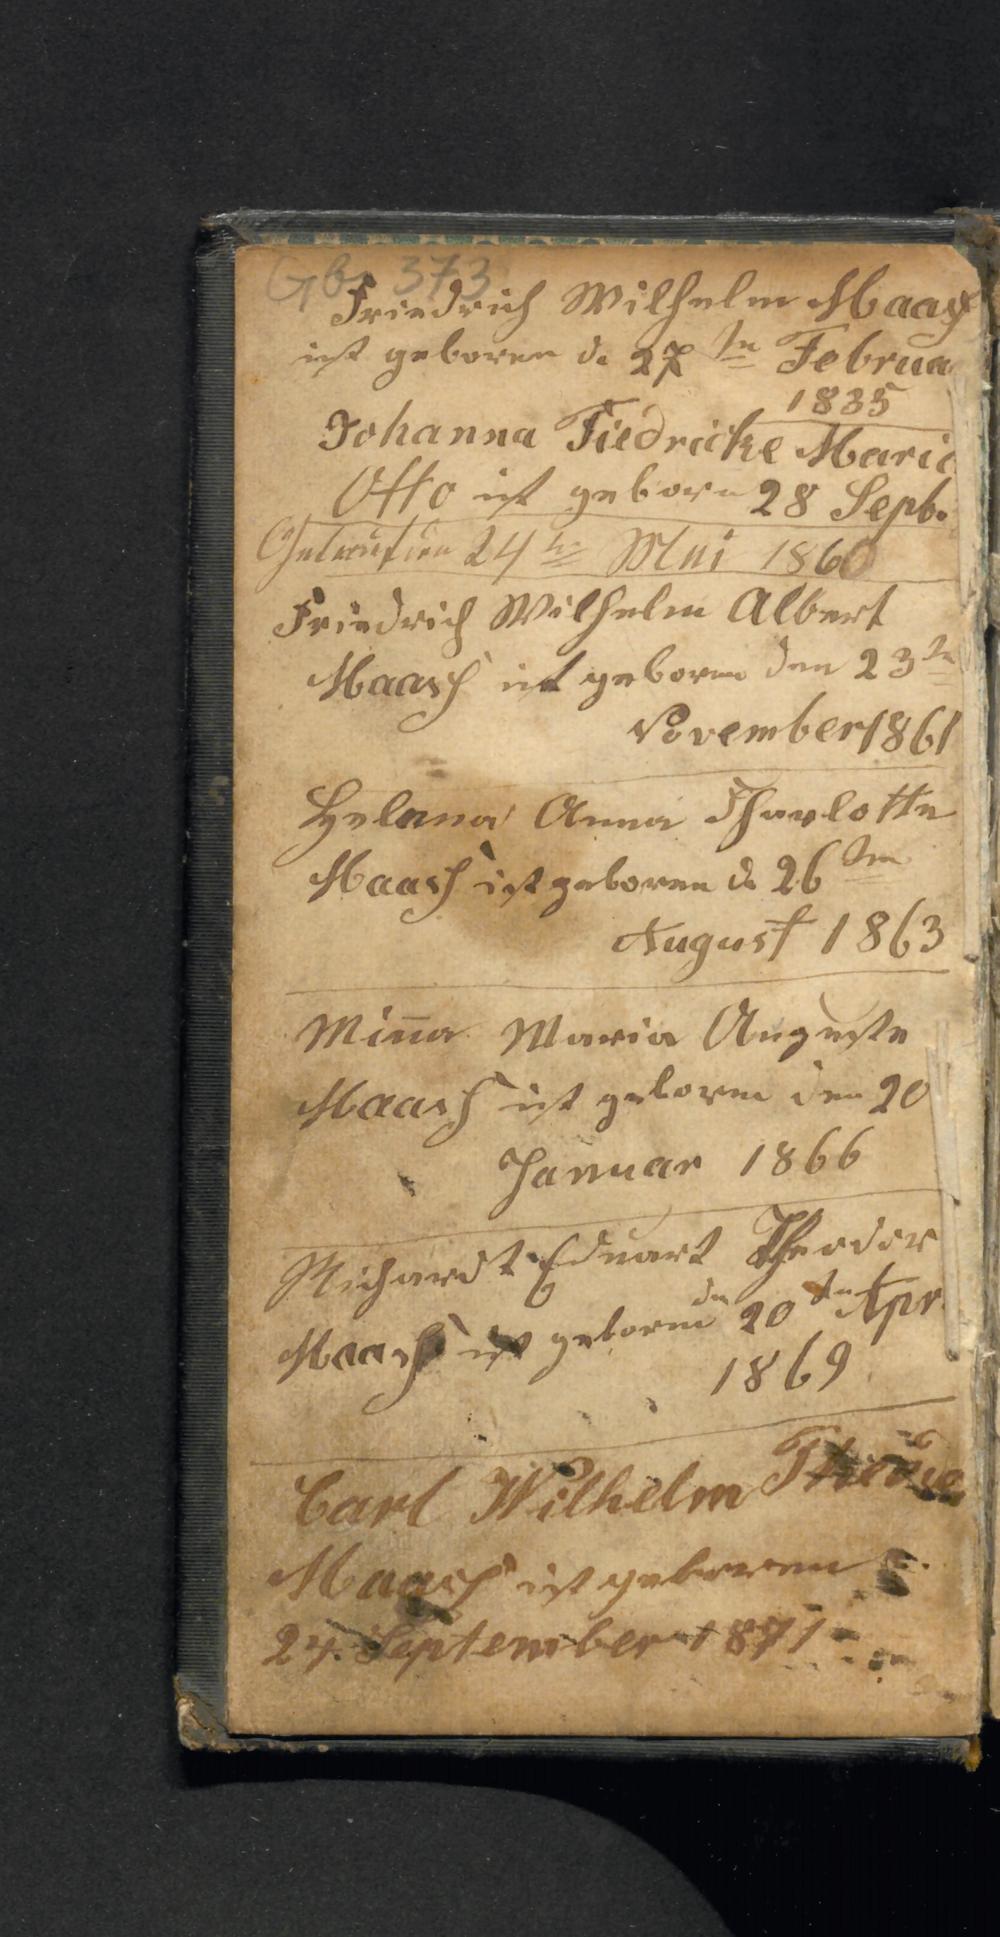 Gb 373
Friedrich Wilhelm Maasch
ist geboren d. 27ten Februa
1835
Johanna Fiedricke Marie
Otto ist geborn 28 Sept.
Getraut den 24te Mai 1860
Friedrich Wilhelm Albert
Maasch ist geboren den 23te
November 1861
Helena Anna Tharlotte
Maasch ist geboren d. 26ten
August 1863
Mina Maria Auguste
Maasch ist geboren den 20
Januar 1866
Richardt Eduart Theodor
Maasch ist geboren den 20ten Apr.
1869
Carl Wilhelm
Maasch ist geboren
24. September 1871